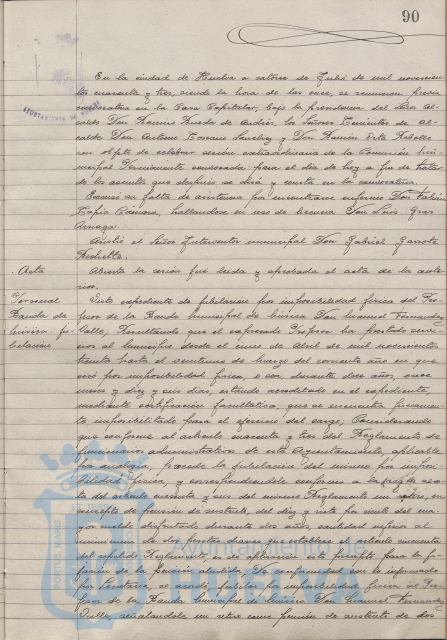 90
En la ciudad de Huelva a catorce de Julio de mil novecien-
tos cuarenta y tres, siendo la hora de las once, se reunieron previa
convocatoria en la Casa Capitular, bajo la presidencia del Señor Al-
calde Don, los Señores Tenientes de Al-
calde Don Antonio y Don Ramón
con objeto de celebrar sesión extraordinaria de la Comisión Mu-
nicipal Permanente convocada para el día de hoy a fin de tratar
de los asuntos que después se dirá y consta en la convocatoria.
Excusó su falta de asistencia por encontrarse enfermo Don Fabián
Tapia, hallándose en uso de licencia Don Luis
Asistió el Señor Interventor municipal Don Gabriel
Acta
Abierta la sesión fué leída y aprobada el acta de la ante-
rior.
Personal
Banda de
Música. ju-
bilación
Visto expediente de jubilación por imposibilidad física del Pro-
fesor de la Banda Municipal de Música Don Manuel Fernandez
Valle, Resultando que el expresado Profesor ha prestado servi-
cios al Municipio desde el mes de Abril de mil novecientos
treinta hasta el veintiuno de Marzo del corriente año en que
cesó por imposibilidad física, o sea, durante doce años, once
meses y diez y seis días, estando acreditado en el expediente,
mediante certificación facultativa, que se encuentra físicamen-
te imposibilitado para el ejercicio del cargo; Considerando
que conforme al artículo cuarenta y tres del Reglamento de
funcionarios administrativos de este Ayuntamiento, aplicable
por analogía, procede la jubilación del mismo por imposi-
bilidad física, y correspondiéndole conforme a la
del artículo cuarenta y seis del mismo Reglamento un retiro, en
concepto de pensión de sustento, del diez y siete por ciento del ma-
yor sueldo disfrutado durante dos años, cantidad inferior al
mínimum de dos pesetas diarias que establece el artículo cincuenta
del repetido Reglamento, es de aplicación este precepto para la fi-
jación de la pensión aludida; De conformidad con lo informado
por Secretaría, se acordó jubilar por imposibilidad física al Pro-
fesor de la Banda Municipal de Música Don Manuel Fernandez
Valle, señalándole un retiro como pensión de sustento de dos